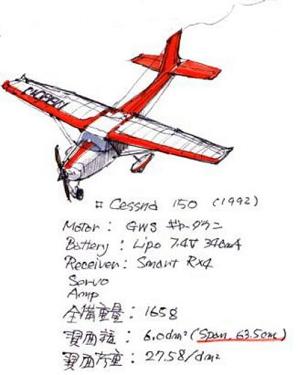 # Cessna 150 (1992)
Motor: GWS ギヤーダウン
Battery: Lipo 7.4V 340mA
Receiver: Smart Rx4
Servo
Amp
全備重量: 165g
翼面積: 6.0dm² (Span, 63.5cm)
翼面荷重: 27.5g/dm²